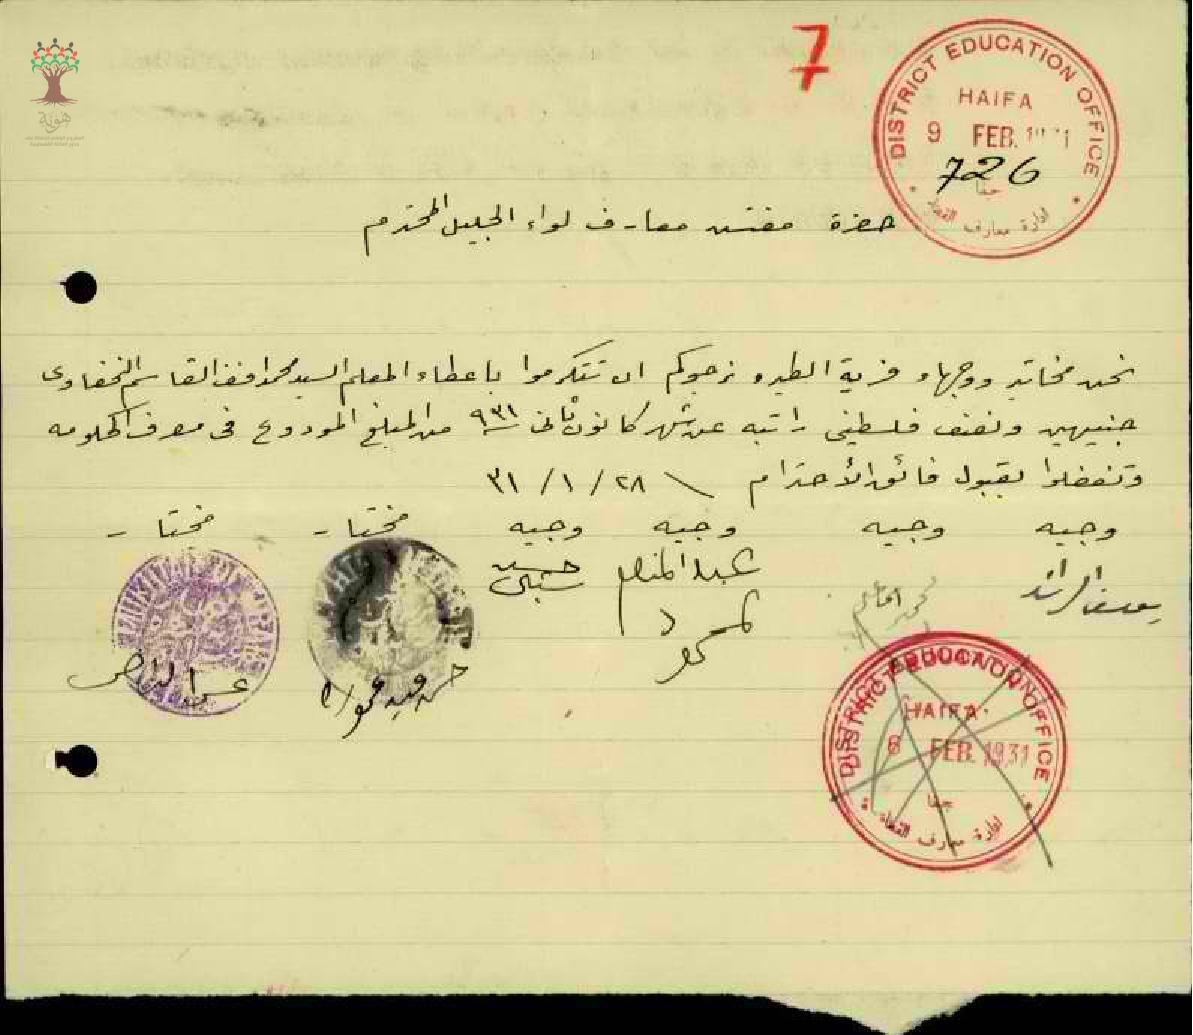 هوية
7
DISTRICT EDUCATION OFFICE
HAIFA
9 FEB. 1931
726
حيفا
ادارة معارف القضاء
حضرة مفتش معارف لواء الجليل المحترم
نحن مخاتير ووجهاء قرية الطيره نرجوكم ان تتكرموا باعطاء المعلم السيد محمد افندي القاسم
جنيهين ونصف فلسطيني راتبه عن شهر كانون ثاني سنة ٩٣١ من المبلغ المودوع في صرف الحكومه
وتفضلوا بقبول فائق الأحترام \ ٢٨ / ١ / ٣١
وجيه وجيه وجيه وجيه مختار مختار
عبد المنعم
محمود
حسن
DISTRICT EDUCATION OFFICE
HAIFA
6 FEB. 1931
حيفا
ادارة معارف القضاء